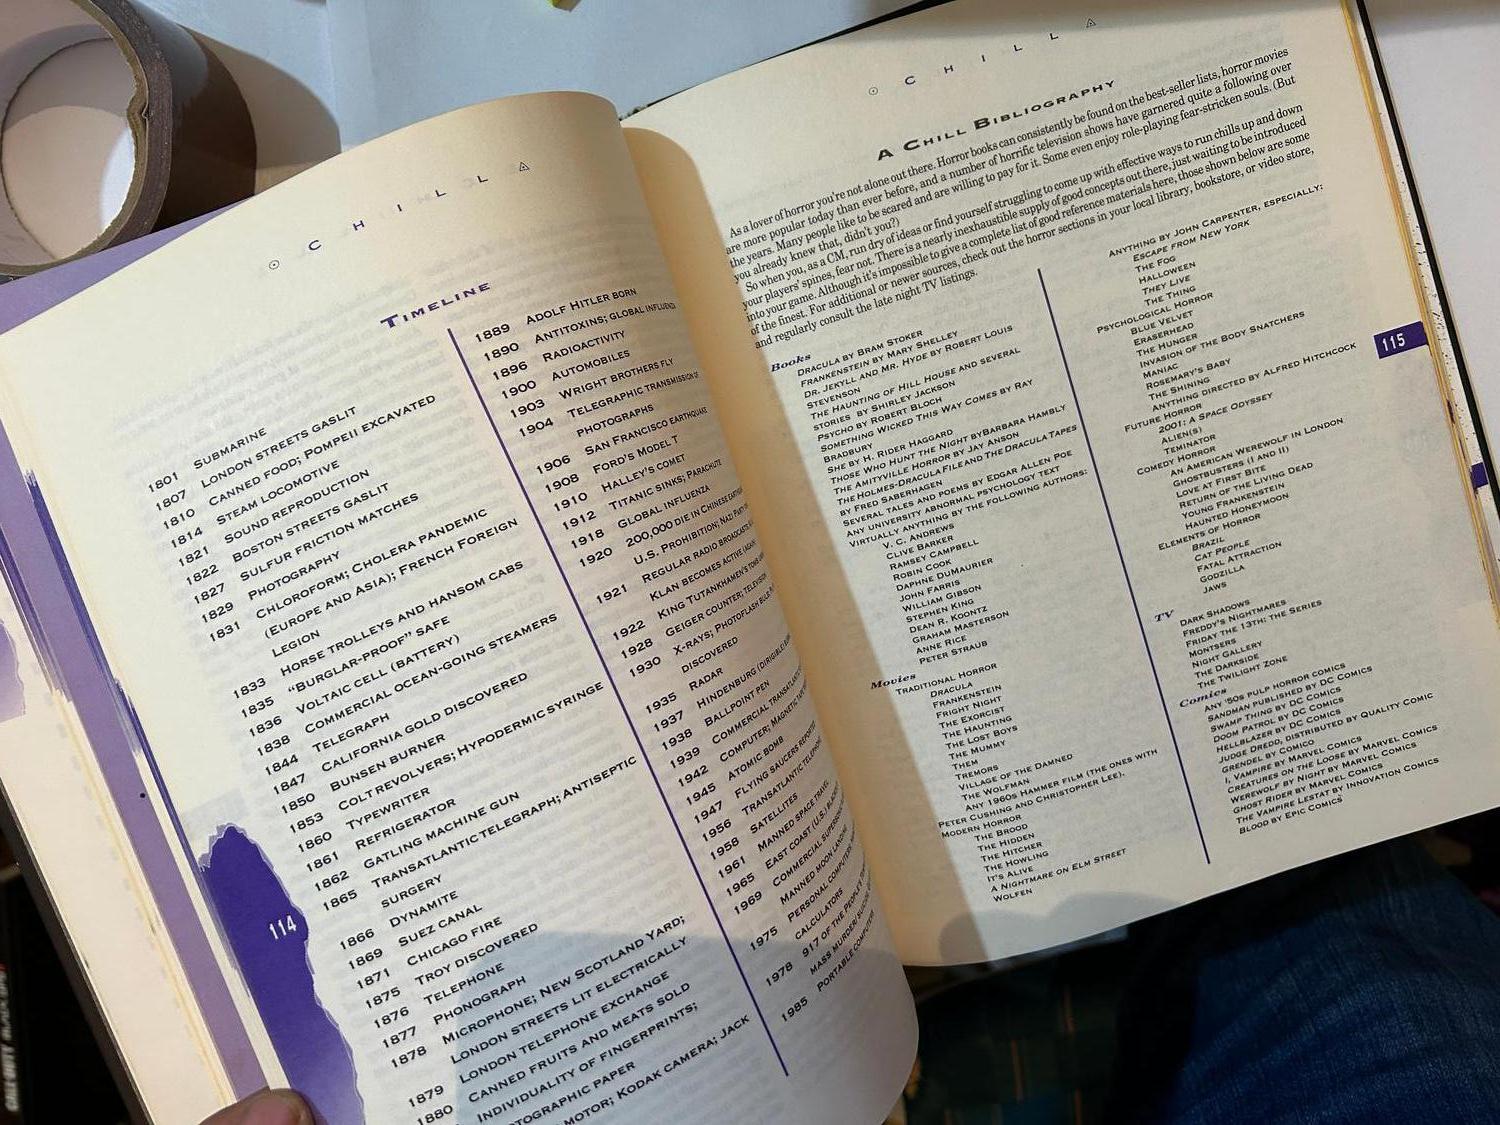 CHILL
TIMELINE
1801 SUBMARINE
1807 LONDON STREETS GASLIT
1810 CANNED FOOD; POMPEII EXCAVATED
1814 STEAM LOCOMOTIVE
1821 SOUND REPRODUCTION
1822 BOSTON STREETS GASLIT
1827 SULFUR FRICTION MATCHES
1829 PHOTOGRAPHY
1831 CHLOROFORM; CHOLERA PANDEMIC
(EUROPE AND ASIA); FRENCH FOREIGN
LEGION
1833 HORSE TROLLEYS AND HANSOM CABS
1835 "BURGLAR-PROOF" SAFE
1836 VOLTAIC CELL (BATTERY)
1838 COMMERCIAL OCEAN-GOING STEAMERS
1844 TELEGRAPH
1847 CALIFORNIA GOLD DISCOVERED
1850 BUNSEN BURNER
1853 COLT REVOLVERS; HYPODERMIC SYRINGE
1860 TYPEWRITER
1861 REFRIGERATOR
1862 GATLING MACHINE GUN
1865 TRANSATLANTIC TELEGRAPH; ANTISEPTIC
SURGERY
1866 DYNAMITE
1869 SUEZ CANAL
1871 CHICAGO FIRE
1875 TROY DISCOVERED
1876 TELEPHONE
1877 PHONOGRAPH
1878 MICROPHONE; NEW SCOTLAND YARD;
LONDON STREETS LIT ELECTRICALLY
1879 LONDON TELEPHONE EXCHANGE
1880 CANNED FRUITS AND MEATS SOLD
INDIVIDUALITY OF FINGERPRINTS;
PAPER
MOTOR; KODAK CAMERA; JACK
1889 ADOLF HITLER BORN
1890 ANTITOXINS; GLOBAL INFLUENZA
1896 RADIOACTIVITY
1900 AUTOMOBILES
1903 WRIGHT BROTHERS FLY
1904 TELEGRAPHIC TRANSMISSION OF
PHOTOGRAPHS
1906 SAN FRANCISCO EARTHQUAKE
1908 FORD'S MODEL T
1910 HALLEY'S COMET
1912 TITANIC SINKS; PARACHUTE
1918 GLOBAL INFLUENZA
1920 200,000 DIE IN CHINESE
U.S. PROHIBITION; NAZI
1921 REGULAR RADIO BROADCASTS
KLAN BECOMES ACTIVE (AGAIN)
1922 KING TUTANKHAMEN'S TOMB
1928 GEIGER COUNTER; TELEVISION
1930 X-RAYS; PHOTOFLASH BULB
DISCOVERED
1935 RADAR
1937 HINDENBURG (DIRIGIBLE)
1938 BALLPOINT PEN
1939 COMMERCIAL
1942 COMPUTER; MAGNETIC
1945 ATOMIC BOMB
1947 FLYING SAUCERS
1956 TRANSATLANTIC
1958 SATELLITES
1961 MANNED SPACE TRAVEL
1965 EAST COAST (U.S.)
1969 COMMERCIAL
MANNED MOON LANDING
1975 PERSONAL COMPUTERS
CALCULATORS
1978 917 OF THE PEOPLE'S
MASS MURDER/
1985 PORTABLE COMPUTER
114
CHILL
A CHILL BIBLIOGRAPHY
As a lover of horror you're not alone out there. Horror books can consistently be found on the best-seller lists, horror movies
are more popular today than ever before, and a number of horrific television shows have garnered quite a following over
the years. Many people like to be scared and are willing to pay for it. Some even enjoy role-playing fear-stricken souls. (But
you already knew that, didn't you?)
So when you, as a CM, run dry of ideas or find yourself struggling to come up with effective ways to run chills up and down
your players' spines, fear not. There is a nearly inexhaustible supply of good concepts out there, just waiting to be introduced
into your game. Although it's impossible to give a complete list of good reference materials here, those shown below are some
of the finest. For additional or newer sources, check out the horror sections in your local library, bookstore, or video store,
and regularly consult the late night TV listings.
Books
DRACULA BY BRAM STOKER
FRANKENSTEIN BY MARY SHELLEY
DR. JEKYLL AND MR. HYDE BY ROBERT LOUIS
STEVENSON
THE HAUNTING OF HILL HOUSE AND SEVERAL
STORIES BY SHIRLEY JACKSON
PSYCHO BY ROBERT BLOCH
SOMETHING WICKED THIS WAY COMES BY RAY
BRADBURY
SHE BY H. RIDER HAGGARD
THOSE WHO HUNT THE NIGHT BY BARBARA HAMBLY
THE AMITYVILLE HORROR BY JAY ANSON
THE HOLMES-DRACULA FILE AND THE DRACULA TAPES
BY FRED SABERHAGEN
SEVERAL TALES AND POEMS BY EDGAR ALLEN POE
ANY UNIVERSITY ABNORMAL PSYCHOLOGY TEXT
VIRTUALLY ANYTHING BY THE FOLLOWING AUTHORS:
V. C. ANDREWS
CLIVE BARKER
RAMSEY CAMPBELL
ROBIN COOK
DAPHNE DUMAURIER
JOHN FARRIS
WILLIAM GIBSON
STEPHEN KING
DEAN R. KOONTZ
GRAHAM MASTERSON
ANNE RICE
PETER STRAUB
Movies
TRADITIONAL HORROR
DRACULA
FRANKENSTEIN
FRIGHT NIGHT
THE EXORCIST
THE HAUNTING
THE LOST BOYS
THE MUMMY
THEM
TREMORS
VILLAGE OF THE DAMNED
THE WOLFMAN
ANY 1960S HAMMER FILM (THE ONES WITH
PETER CUSHING AND CHRISTOPHER LEE).
MODERN HORROR
THE BROOD
THE HIDDEN
THE HITCHER
THE HOWLING
IT'S ALIVE
A NIGHTMARE ON ELM STREET
WOLFEN
ANYTHING BY JOHN CARPENTER, ESPECIALLY:
ESCAPE FROM NEW YORK
THE FOG
HALLOWEEN
THEY LIVE
THE THING
PSYCHOLOGICAL HORROR
BLUE VELVET
ERASERHEAD
THE HUNGER
INVASION OF THE BODY SNATCHERS
MANIAC
ROSEMARY'S BABY
THE SHINING
ANYTHING DIRECTED BY ALFRED HITCHCOCK
FUTURE HORROR
2001: A SPACE ODYSSEY
ALIEN(S)
TEMINATOR
COMEDY HORROR
AN AMERICAN WEREWOLF IN LONDON
GHOSTBUSTERS (I AND II)
LOVE AT FIRST BITE
RETURN OF THE LIVING DEAD
YOUNG FRANKENSTEIN
HAUNTED HONEYMOON
ELEMENTS OF HORROR
BRAZIL
CAT PEOPLE
FATAL ATTRACTION
GODZILLA
JAWS
TV
DARK SHADOWS
FREDDY'S NIGHTMARES
FRIDAY THE 13TH: THE SERIES
MONTSERS
NIGHT GALLERY
THE DARKSIDE
THE TWILIGHT ZONE
Comics
ANY '50S PULP HORROR COMICS
SANDMAN PUBLISHED BY DC COMICS
SWAMP THING BY DC COMICS
DOOM PATROL BY DC COMICS
HELLBLAZER BY DC COMICS
JUDGE DREDD, DISTRIBUTED BY QUALITY COMIC
GRENDEL BY COMICO
I, VAMPIRE BY MARVEL COMICS
CREATURES ON THE LOOSE BY MARVEL COMICS
WEREWOLF BY NIGHT BY MARVEL COMICS
GHOST RIDER BY MARVEL COMICS
THE VAMPIRE LESTAT BY INNOVATION COMICS
BLOOD BY EPIC COMICS
115